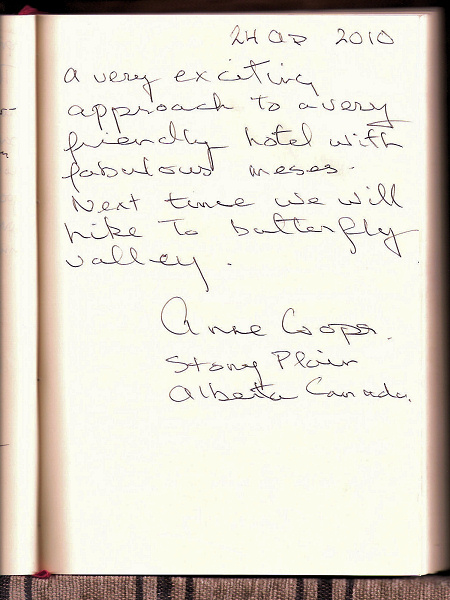 24 Ap 2010
a very exciting
approach to a very
friendly hotel with
fabulous meses.
Next time we will
hike to butterfly
valley.
Anne
Stony Plain
Alberta Canada.